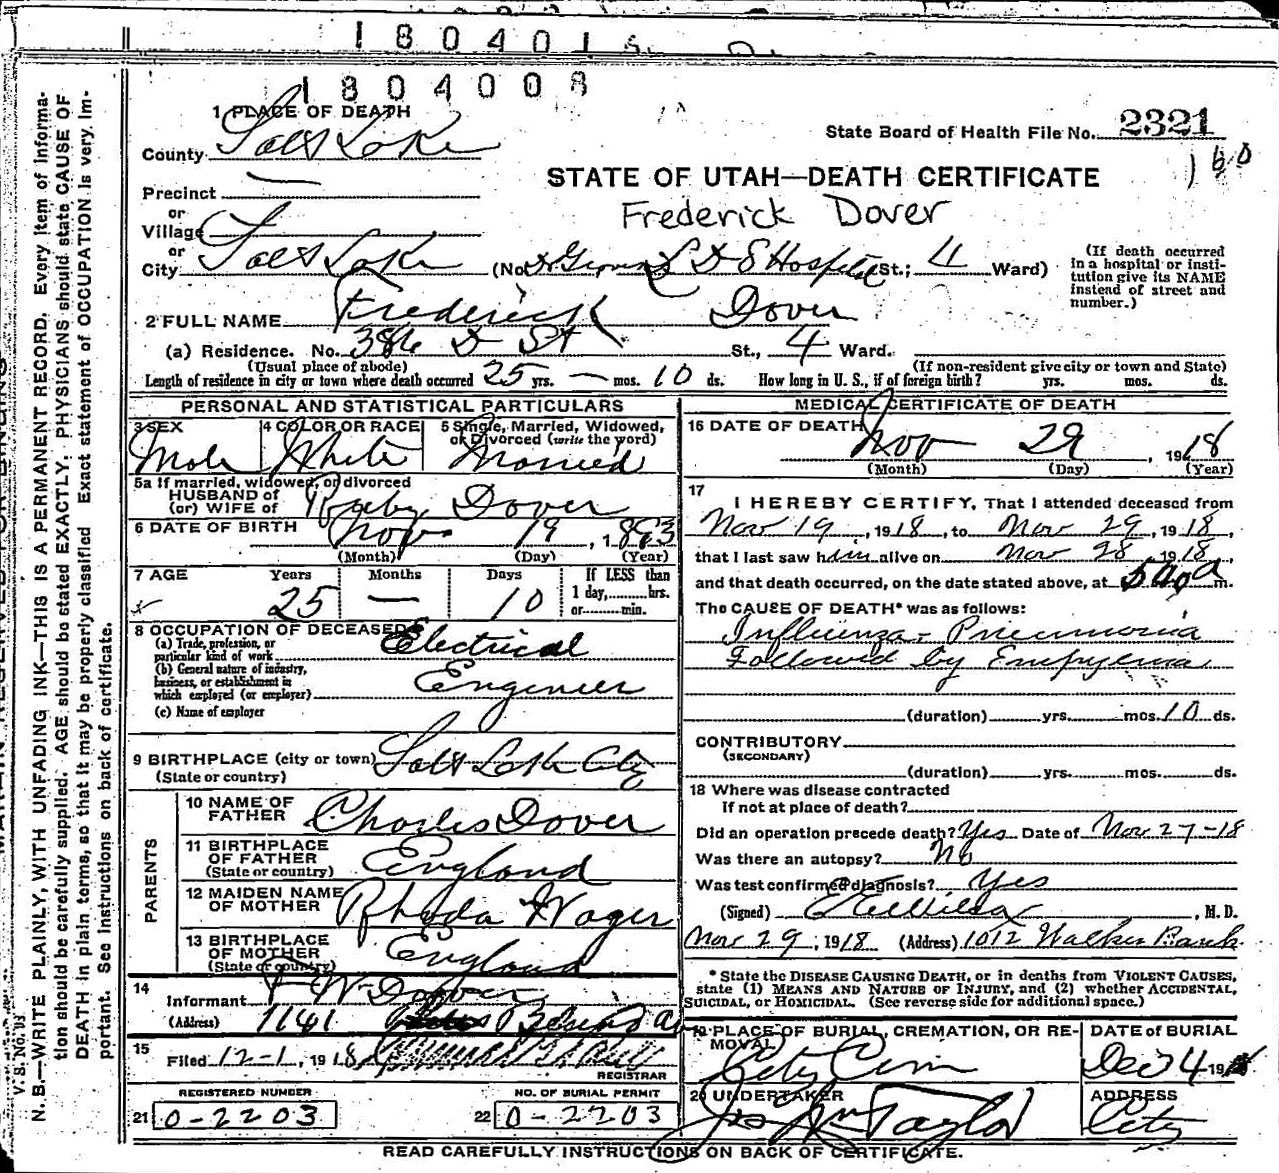 180401
1804008
1 PLACE OF DEATH
State Board of Health File No. 2321
160
County Salt Lake
STATE OF UTAH—DEATH CERTIFICATE
Precinct —
Frederick Dover
or
Village
or
City Salt Lake (No. L D S Hospital St.; 4 Ward)
(If death occurred in a hospital or institution give its NAME instead of street and number.)
2 FULL NAME Frederick Dover
(a) Residence. No. 386 D St St., 4 Ward.
(Usual place of abode) (If non-resident give city or town and State)
Length of residence in city or town where death occurred 25 yrs. — mos. 10 ds. How long in U. S., if of foreign birth? yrs. mos. ds.
PERSONAL AND STATISTICAL PARTICULARS
3 SEX 4 COLOR OR RACE 5 Single, Married, Widowed, or Divorced (write the word)
Male White Married
5a If married, widowed, or divorced
HUSBAND of
(or) WIFE of Ruby Dover
6 DATE OF BIRTH Nov. 19, 1893
(Month) (Day) (Year)
7 AGE Years Months Days If LESS than
1 day, hrs.
or min.
25 — 10
8 OCCUPATION OF DECEASED
(a) Trade, profession, or
particular kind of work Electrical
(b) General nature of industry,
business, or establishment in
which employed (or employer) Engineer
(c) Name of employer
9 BIRTHPLACE (city or town) Salt Lake City
(State or country)
PARENTS
10 NAME OF
FATHER Charles Dover
11 BIRTHPLACE
OF FATHER England
(State or country)
12 MAIDEN NAME
OF MOTHER Rhoda Wager
13 BIRTHPLACE
OF MOTHER England
(State or country)
14
Informant F W Dover
(Address) 1141
15
Filed 12-1, 1918
REGISTRAR
REGISTERED NUMBER NO. OF BURIAL PERMIT
21 0-2203 22 0-2203
MEDICAL CERTIFICATE OF DEATH
16 DATE OF DEATH Nov 29, 1918
(Month) (Day) (Year)
17
I HEREBY CERTIFY, That I attended deceased from
Nov 19, 1918, to Nov 29, 1918,
that I last saw him alive on Nov 28, 1918,
and that death occurred, on the date stated above, at m.
The CAUSE OF DEATH* was as follows:
Influenza - Pneumonia
Followed by Empyema
(duration) yrs. mos. 10 ds.
CONTRIBUTORY
(SECONDARY)
(duration) yrs. mos. ds.
18 Where was disease contracted
if not at place of death?
Did an operation precede death? Yes Date of Nov 27-18
Was there an autopsy? No
Was test confirmed diagnosis? Yes
(Signed) , M. D.
Nov 29, 1918 (Address) 1012 Walker Bank
* State the DISEASE CAUSING DEATH, or in deaths from VIOLENT CAUSES,
state (1) MEANS AND NATURE OF INJURY, and (2) whether ACCIDENTAL,
SUICIDAL, or HOMICIDAL. (See reverse side for additional space.)
19 PLACE OF BURIAL, CREMATION, OR REMOVAL DATE of BURIAL
City Cem Dec 4 191
20 UNDERTAKER ADDRESS
Jos Wm Taylor City
READ CAREFULLY INSTRUCTIONS ON BACK OF CERTIFICATE.
V. S. No.
N. B.—WRITE PLAINLY, WITH UNFADING INK—THIS IS A PERMANENT RECORD. Every item of information should be carefully supplied. AGE should be stated EXACTLY. PHYSICIANS should state CAUSE OF DEATH in plain terms, so that it may be properly classified. Exact statement of OCCUPATION is very important. See instructions on back of certificate.